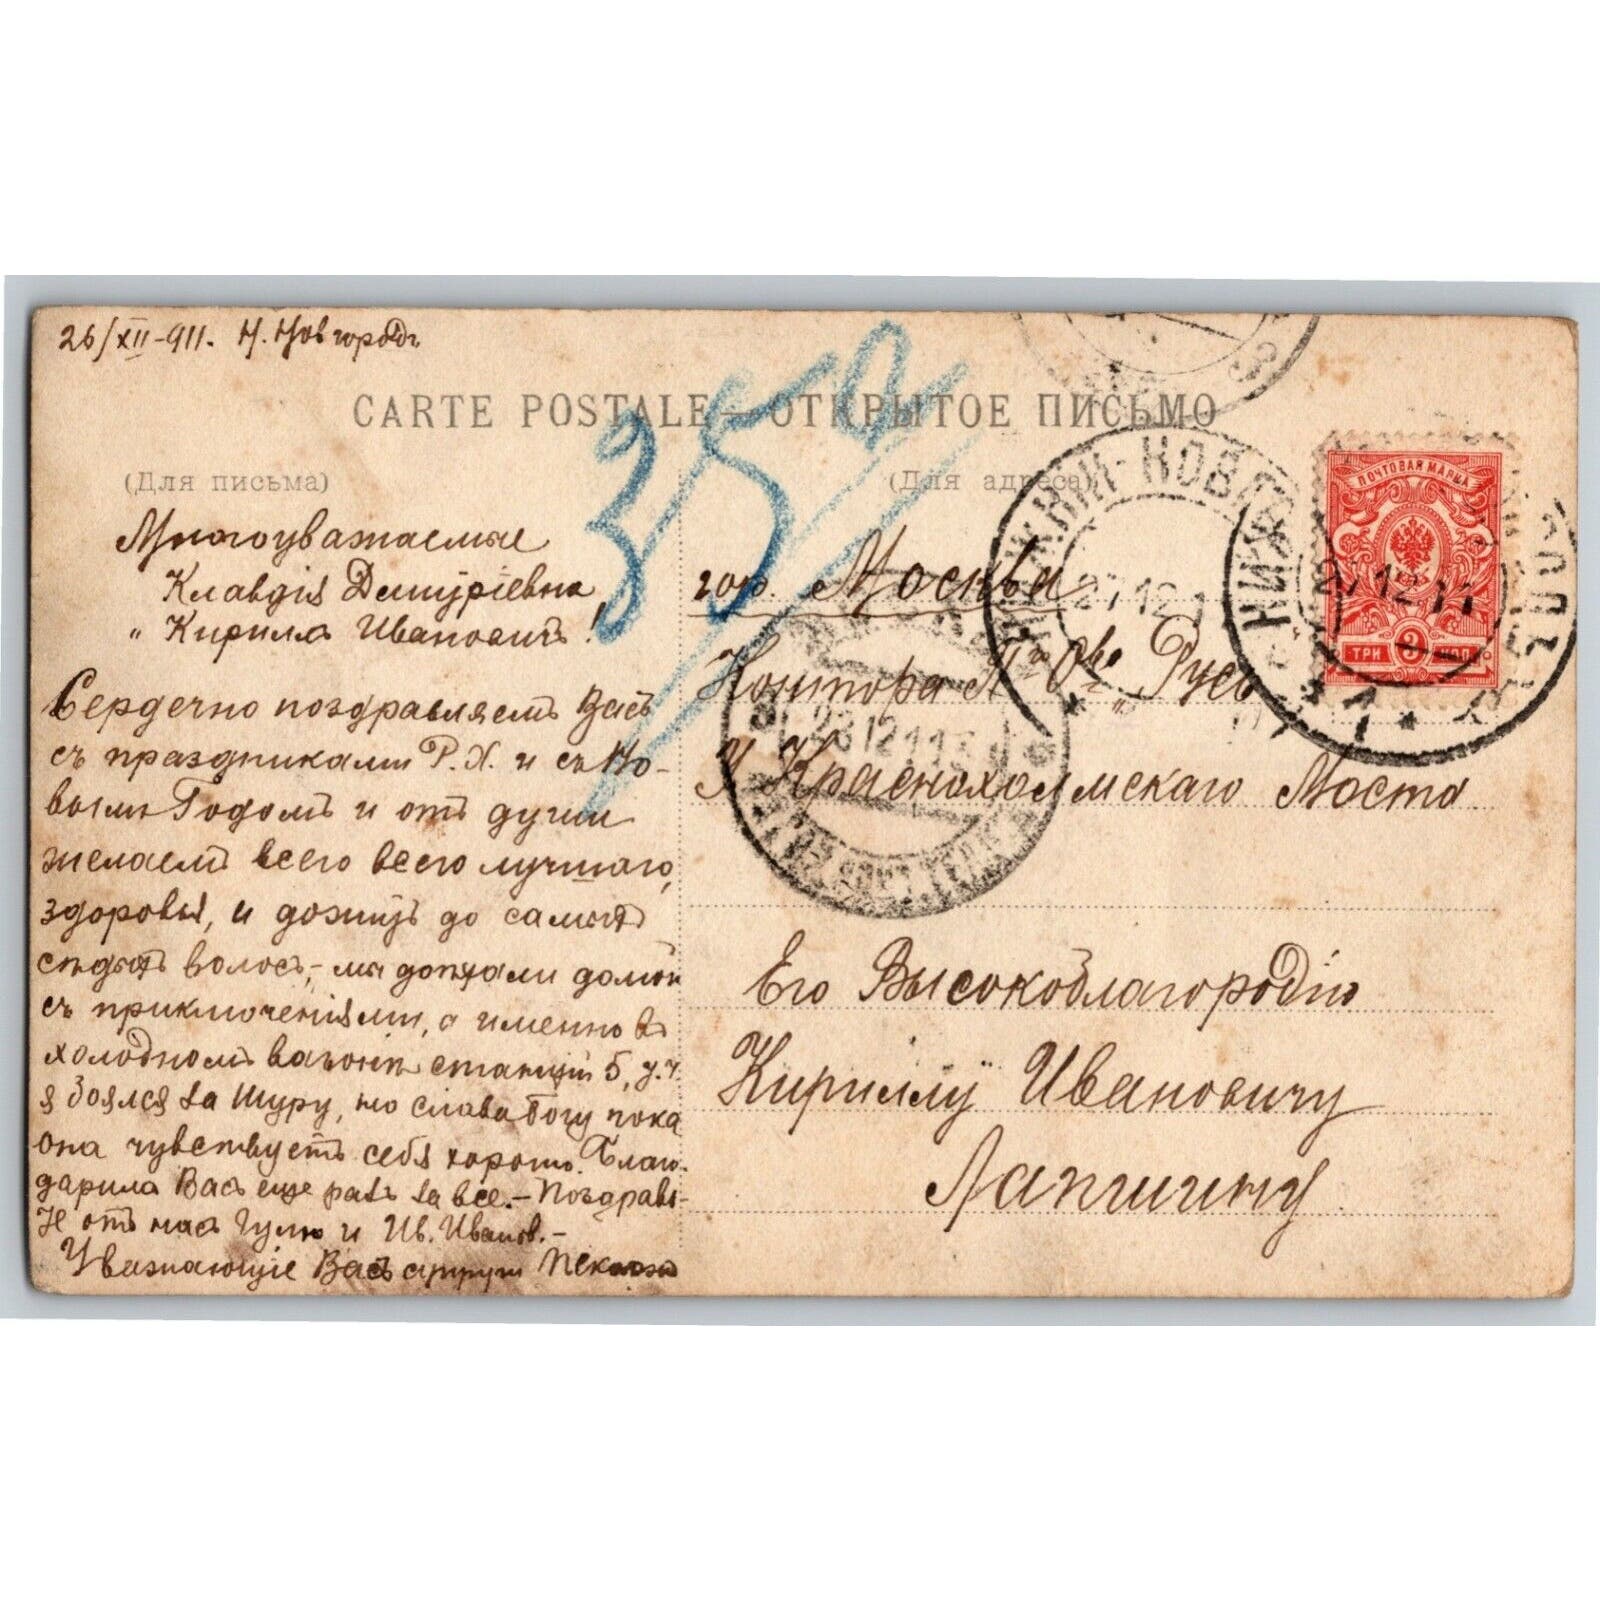 26/XII-911. Н. Новгородъ
CARTE POSTALE — ОТКРЫТОЕ ПИСЬМО
(Для письма)
Многоуважаемые
Клавдія Димитріевна
„ Кирилла Ивановичъ!
Сердечно поздравляемъ Васъ
съ праздниками Р. Х. и съ Но-
вымъ Годомъ и отъ души
желаемъ всего всего лучшаго,
здоровья, и дожить до самыхъ
сѣдыхъ волосъ, - мы доѣхали домой
съ приключеніями, а именно въ
холодномъ вагонѣ станцій 5,
я боялся за Шуру, но слава Богу пока
она чувствуетъ себя хорошо. Благо-
дарила Васъ еще разъ за все. - Поздравь-
те отъ насъ Гулю и Ив. Иванов. -
Уважающіе Васъ супруги
35
(Для адреса)
гор. Москва
Контора Т-го О-ва „Русь
У Краснохолмскаго Моста
Его Высокоблагородію
Кириллу Ивановичу
Лапшину
ПОЧТОВАЯ МАРКА
ТРИ 3 КОП.
НИЖНІЙ-НОВ
27 12 11
1
НИЖ
27 12 11
28 12 11